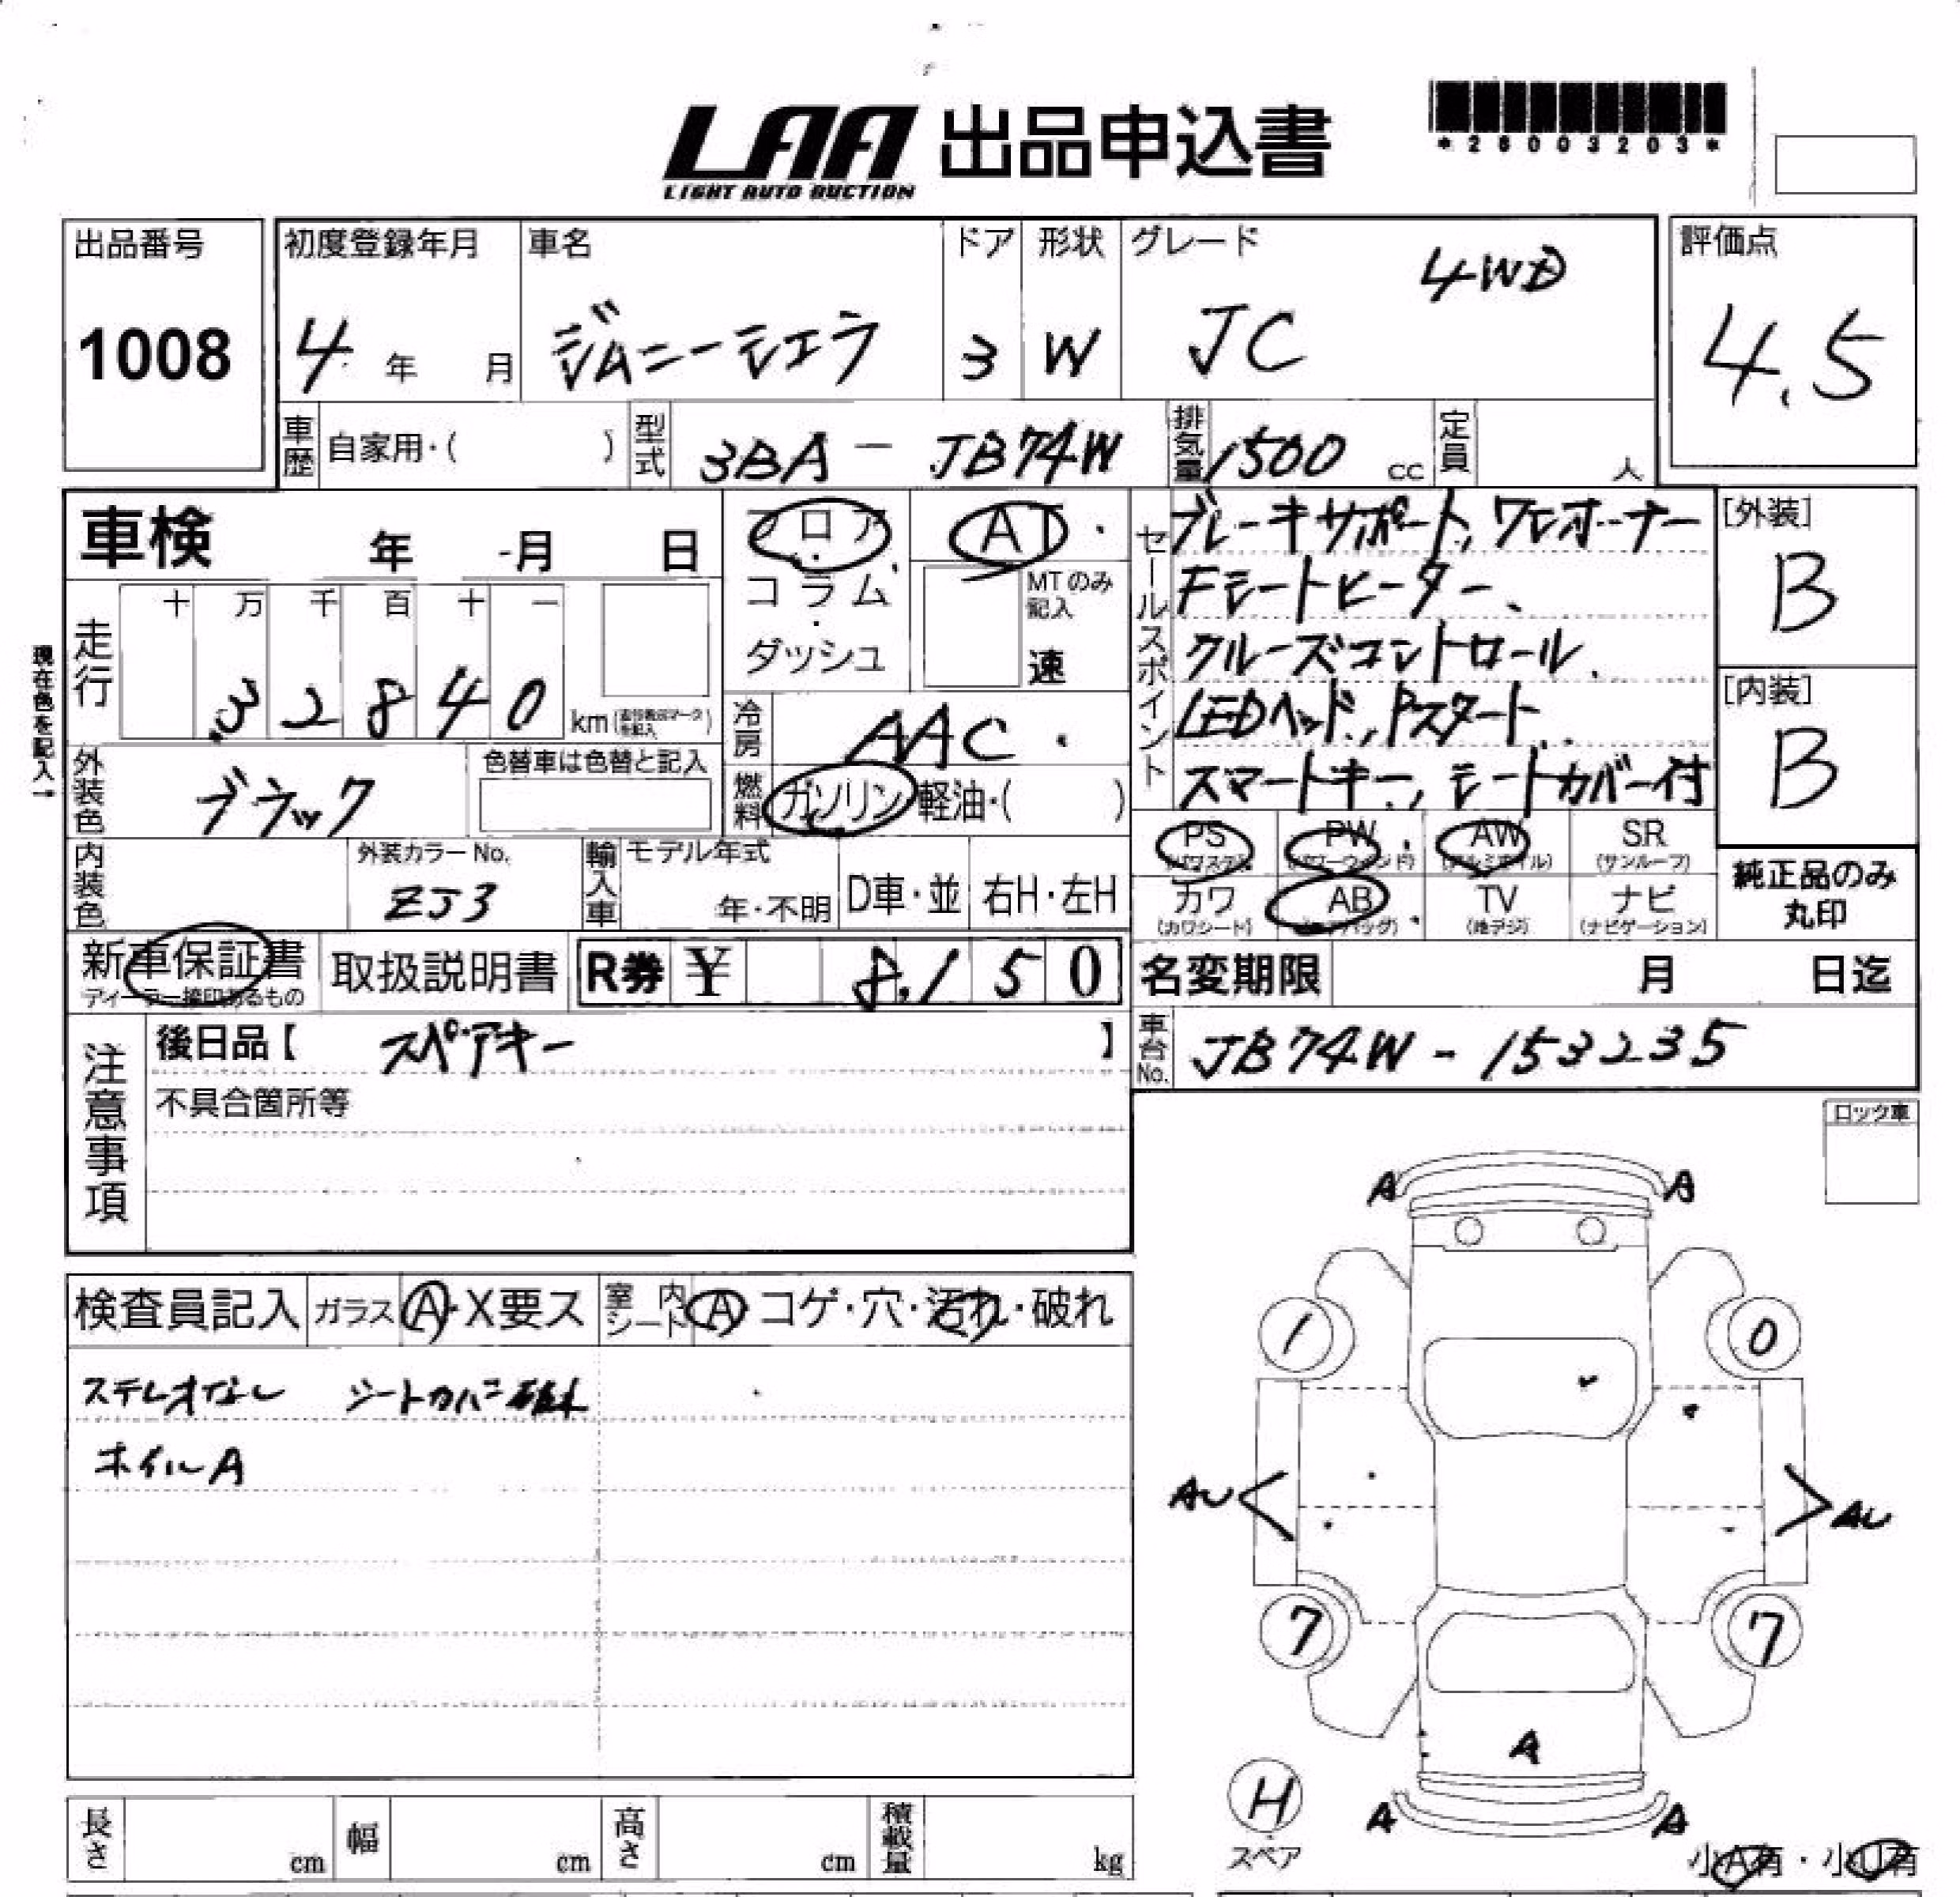 LAA 出品申込書
LIGHT AUTO AUCTION
*26003203*
出品番号
1008
初度登録年月
4年 月
車名
ジムニーシエラ
ドア
3
形状
W
グレード
4WD
JC
評価点
4.5
車歴 自家用・( )
型式 3BA - JB74W
排気量 1500 cc
定員 人
車検 年 月 日
フロア・コラム・ダッシュ
AT・
MTのみ記入
速
セールスポイント
ブレーキサポート、ワンオーナー
Fシートヒーター、
クルーズコントロール、
LEDヘッド、Pスタート、
スマートキー、シートカバー付
[外装]
B
[内装]
B
現在色を記入→
走行
十 万 千 百 十 一
3 2 8 4 0 km
冷房 AAC
外装色 ブラック
色替車は色替と記入
燃料 ガソリン・軽油・( )
内装色
外装カラーNo.
ZJ3
輸入車 モデル年式
年・不明
D車・並
右H・左H
PS (パワステ)
PW (パワーウィンド)
AW (アルミホイル)
SR (サンルーフ)
カワ (カワシート)
AB (エアバッグ)
TV (地デジ)
ナビ (ナビゲーション)
純正品のみ丸印
新車保証書
ディーラー捺印あるもの
取扱説明書
R券 ¥ 8,150
名変期限 月 日迄
注意事項
後日品【 スペアキー 】
不具合箇所等
車台No. JB74W - 153235
ロック車
検査員記入
ガラス A・X要ス
室内シート A・コゲ・穴・汚れ・破れ
ステレオなし シートカバー破れ
ホイルA
A A
1 0
AU AU
7 7
A
H
スペア
A A
小A有・小U有
長さ cm
幅 cm
高さ cm
積載量 kg